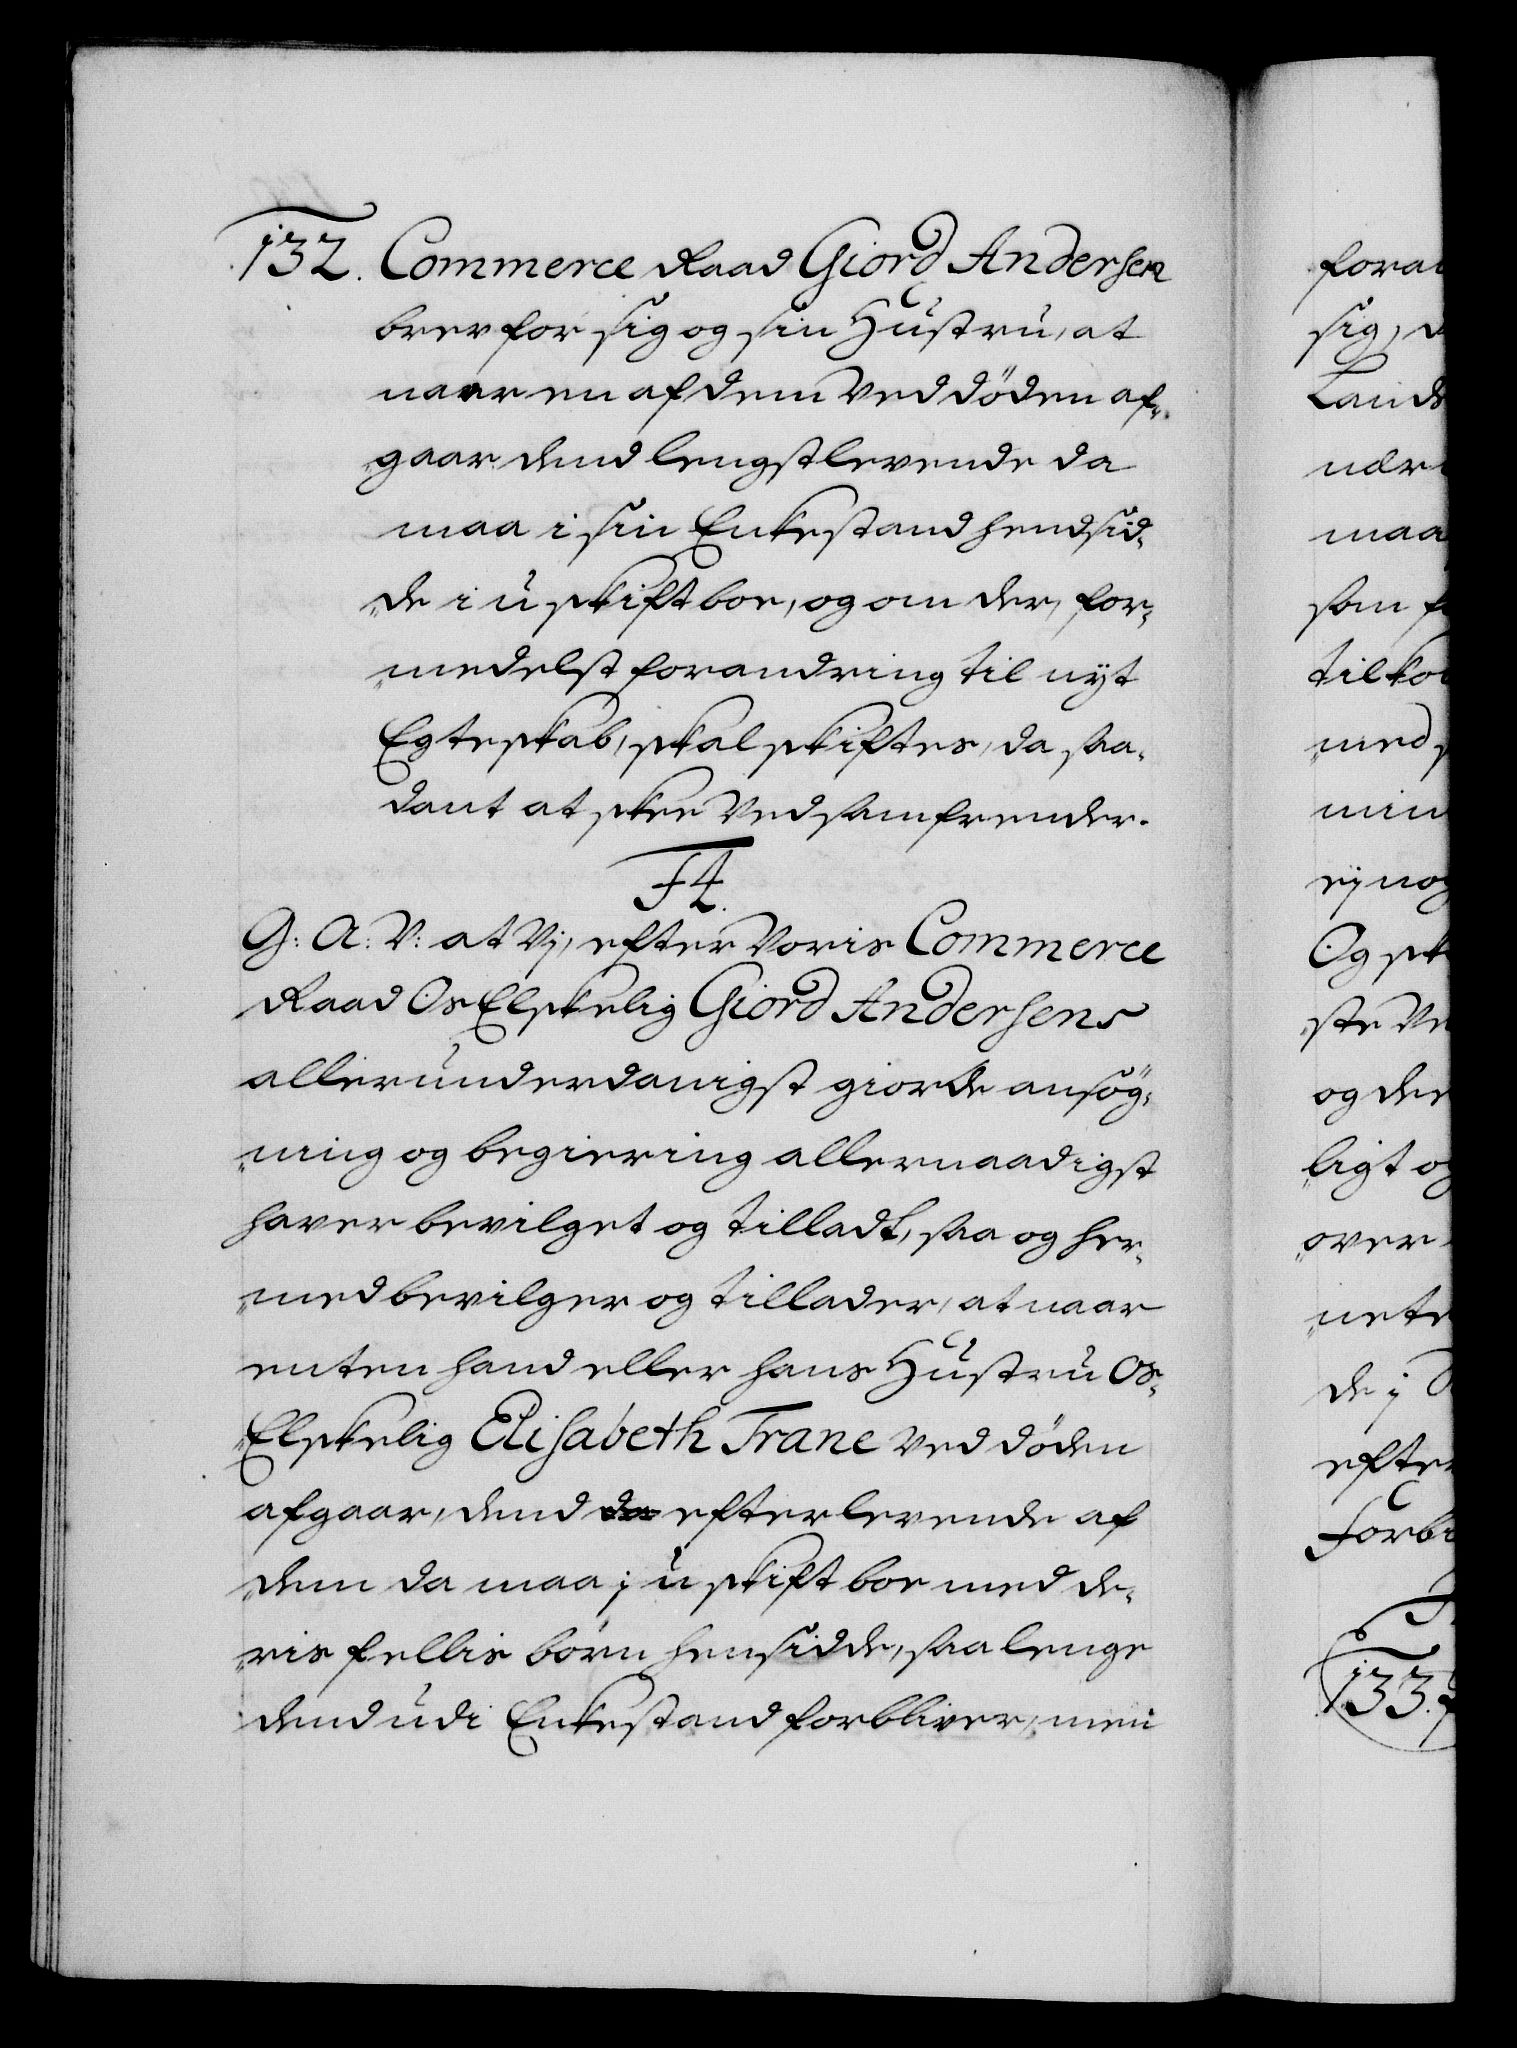 132. Commerce Raad Giord Andersen
brev for sig og sin Hustru, at
naar en af dem ved döden af„
„gaar dend lengstlevende da
maa i sin Enkestand hendsid„
„de i uskift boe, og om der, for„
„medelst forandring til nÿt
Egteskab, skal skiftes, da saa„
dant at skee ved samfrender.
F4.
G: A: V: at Vj, efter Voris Commerce
Raad Os Elskelig Giord Andersens
allerunderdanigst giorde ansög„
„ning og begiering allernaadigst
haver bevilget og tilladt, saa og her„
„med bevilger og tillader, at naar
enten hand eller hans Hustru Os„
„Elskelig Elisabeth Trane ved döden
afgaar, dend da efterlevende af
dem da maa j uskift boe med de„
„ris fellis börn hensidde, saa lenge
dend udi Enkestand forbliver, men
sig,
maa
ej nog
Og sk
„ste Ve
og dee
„ligt og
„over
„nete
de j
133.